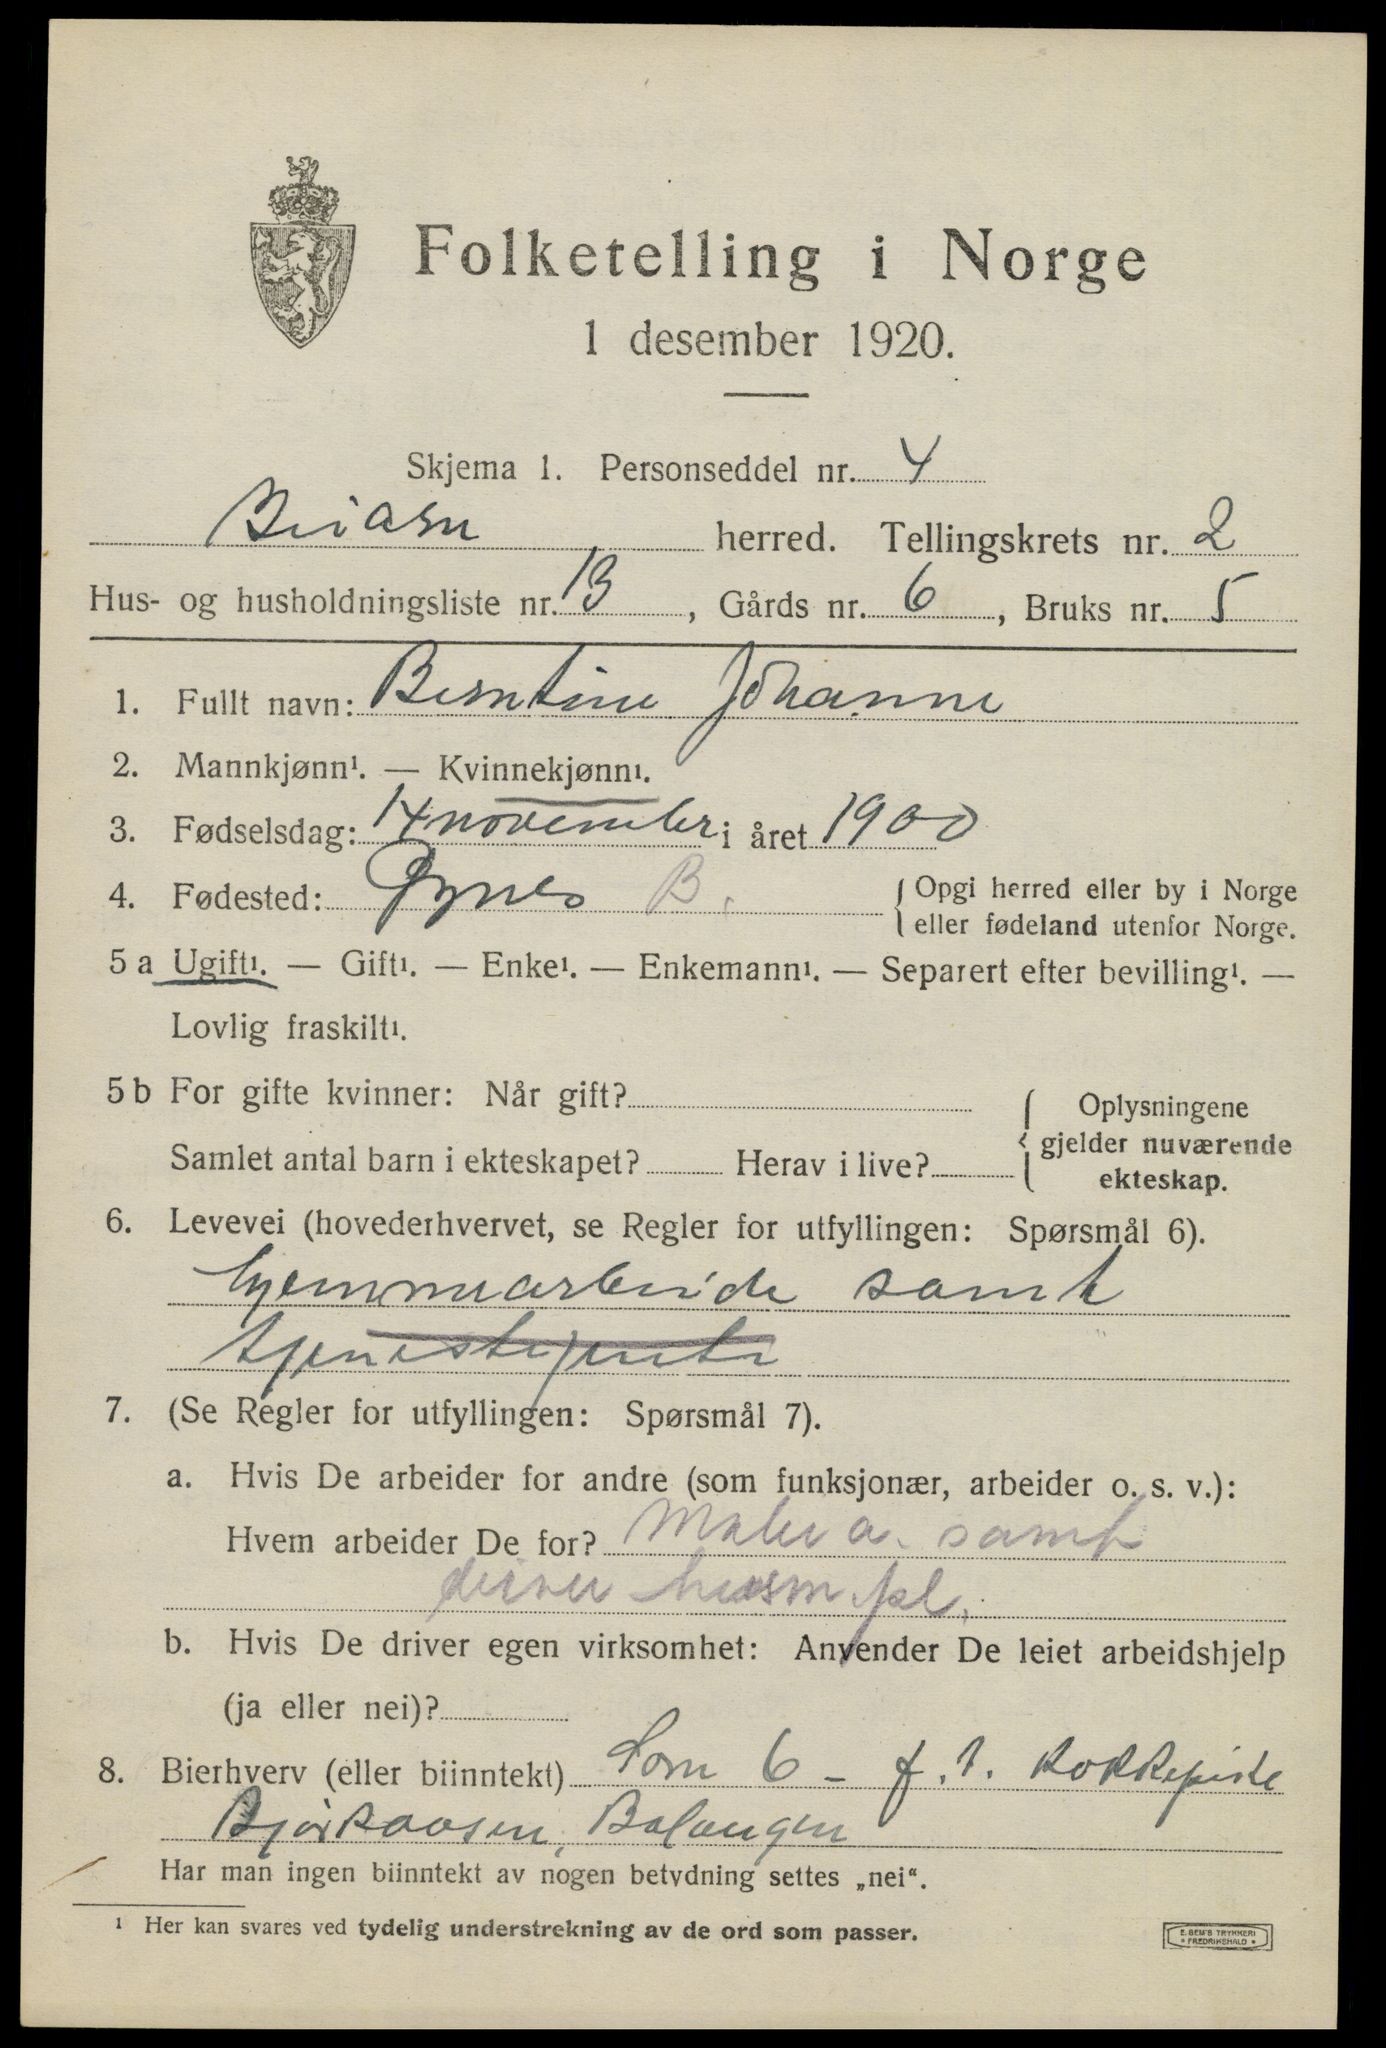 Folketelling i Norge
1 desember 1920.
Skjema 1. Personseddel nr. 4
Beiarn herred. Tellingskrets nr. 2
Hus- og husholdningsliste nr. 13, Gårds nr. 6, Bruks nr. 5
1. Fullt navn: Berntine Johanne
2. Mannkjønn¹. — Kvinnekjønn¹.
3. Fødselsdag: 14 november i året 1900
4. Fødested: B. { Opgi herred eller by i Norge
eller fødeland utenfor Norge.
5 a Ugift¹. — Gift¹. — Enke¹. — Enkemann¹. — Separert efter bevilling¹. —
Lovlig fraskilt¹.
5 b For gifte kvinner: Når gift? { Oplysningene
gjelder nuværende
Samlet antal barn i ekteskapet? Herav i live?
ekteskap.
6. Levevei (hovederhvervet, se Regler for utfyllingen: Spørsmål 6).
hjemmearbeide samt
tjenestejente
7. (Se Regler for utfyllingen: Spørsmål 7).
a. Hvis De arbeider for andre (som funksjonær, arbeider o. s. v.):
Hvem arbeider De for? a. samt
husm pl.
b. Hvis De driver egen virksomhet: Anvender De leiet arbeidshjelp
(ja eller nei)?
8. Bierhverv (eller biinntekt) Som 6 - f. t. kokkepike
Bjørkaasen, Balangen
Har man ingen biinntekt av nogen betydning settes „nei“.
¹ Her kan svares ved tydelig understrekning av de ord som passer.
E. SEM'S TRYKKERI
* FREDRIKSHALD *